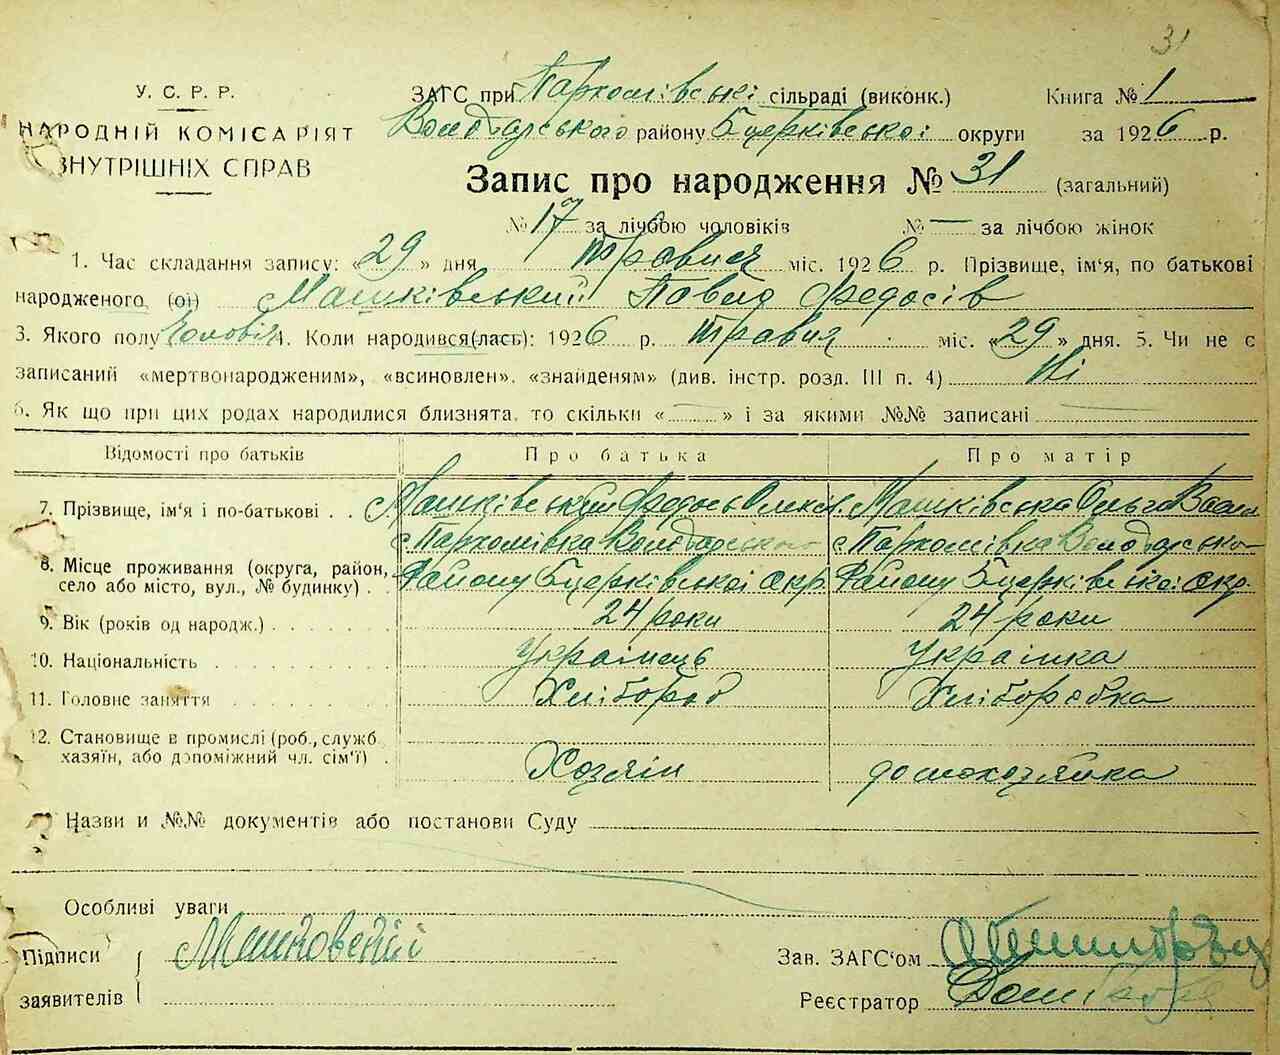 31
У. С. Р. Р.
НАРОДНІЙ КОМІСАРІЯТ
ВНУТРІШНІХ СПРАВ
ЗАГС при Пархомівські сільраді (виконк.) Книга № 1
Володарського району Бцерківської округи за 1926 р.
Запис про народження № 31 (загальний)
№ 17 за лічбою чоловіків № — за лічбою жінок
1. Час складання запису: «29» дня травня міс. 1926 р. Прізвище, ім'я, по батькові
народженого (ої) Машківський Федосів
3. Якого полу Чоловіч 4. Коли народився(лась): 1926 р. травня міс. «29» дня. 5. Чи не є
записаний «мертвонародженим», «всиновлен», «знайденям» (див. інстр. розд. III п. 4) Ні
6. Як що при цих родах народилися близнята, то скільки « » і за якими №№ записані
Відомості про батьків Про батька Про матір
7. Прізвище, ім'я і по-батькові . . Машківський Федось Олекс. Машківська Ольга Васил
с Пархомівка Володарського с Пархомівка Володарсько
8. Місце проживання (округа, район, село або місто, вул., № будинку) . Району Бцерківської окр. Району Бцерківської окр.
9. Вік (років од народж.) . 24 роки 24 роки
10. Національність Українець Українка
11. Головне заняття Хлібороб Хліборобка
12. Становище в промислі (роб., служб.
хазяїн, або допоміжний чл. сім'ї) . Хозяін домохозяйка
Назви и №№ документів або постанови Суду
Особливі уваги
Підписи Машковский Зав. ЗАГС'ом
заявителів Реєстратор